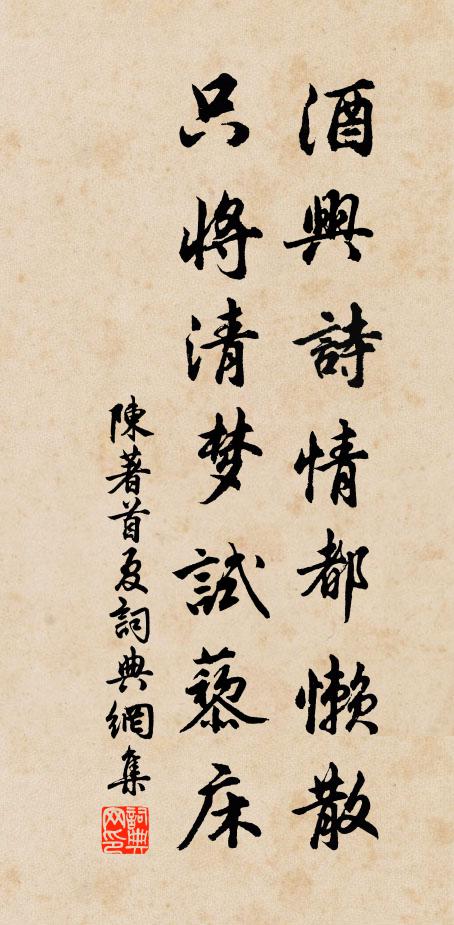 酒興詩情都懶散
只將清梦試藜床
陳著首夏詞典網集
詞典网印